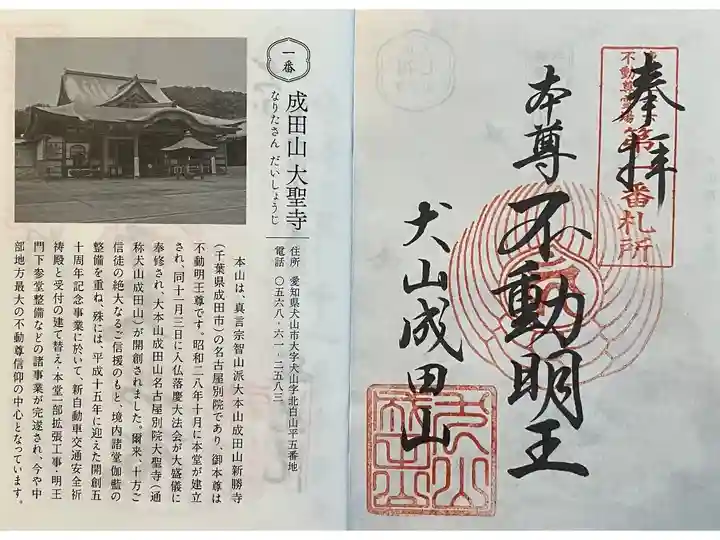 奉拝
不動尊霊場
第一番札所
本尊
不動明王
犬山成田山
一番
成田山 大聖寺
なりたさん だいしょうじ
住所 愛知県犬山市大字犬山字北白山平五番地
電話 〇五六八-六一-二五八三
本山は、真言宗智山派大本山成田山新勝寺
(千葉県成田市)の名古屋別院であり、御本尊は
不動明王尊です。昭和二八年十月に本堂が建立
され、同十一月三日に入仏落慶大法会が大盛儀に
奉修され、大本山成田山名古屋別院大聖寺(通
称犬山成田山)が開創されました。爾来、十方ご
信徒の絶大なるご信援のもと、境内諸堂伽藍の
整備を重ね、殊には、平成十五年に迎えた開創五
十周年記念事業に於いて、新自動車交通安全祈
祷殿と受付の建て替え・本堂一部拡張工事・明王
門下参堂整備などの諸事業が完遂され、今や中
部地方最大の不動尊信仰の中心となっています。